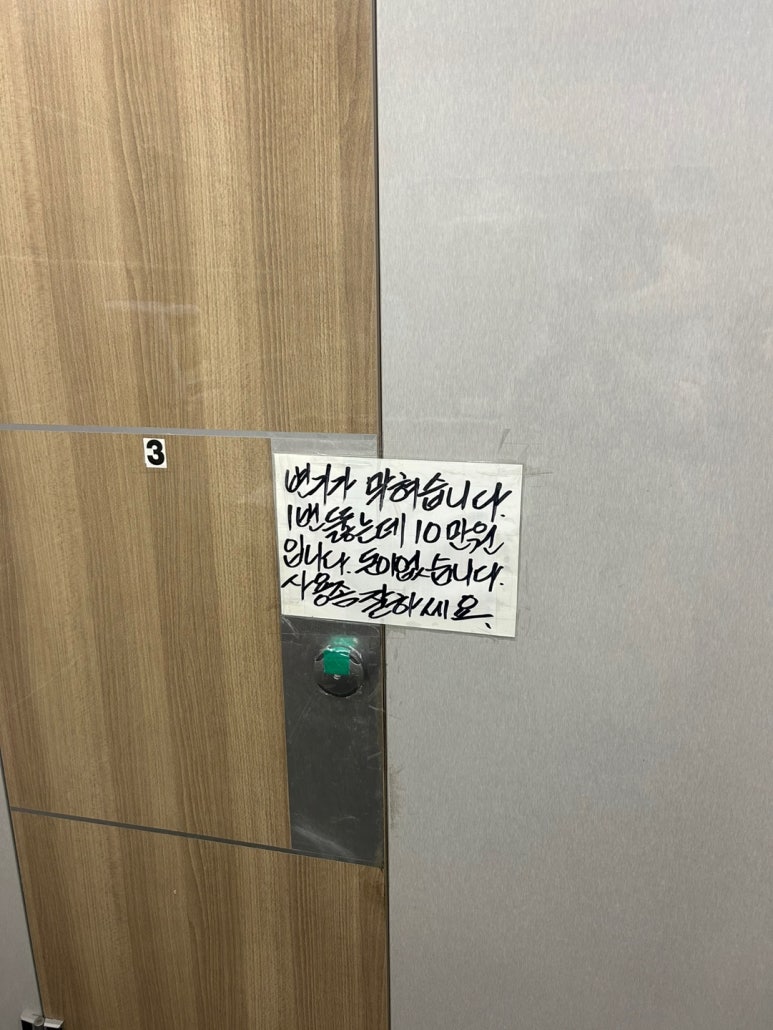 3
변기가 막혀습니다.
1번 뚫는데 10만원
입니다. 돈이없습니다.
사용좀 잘하세요.